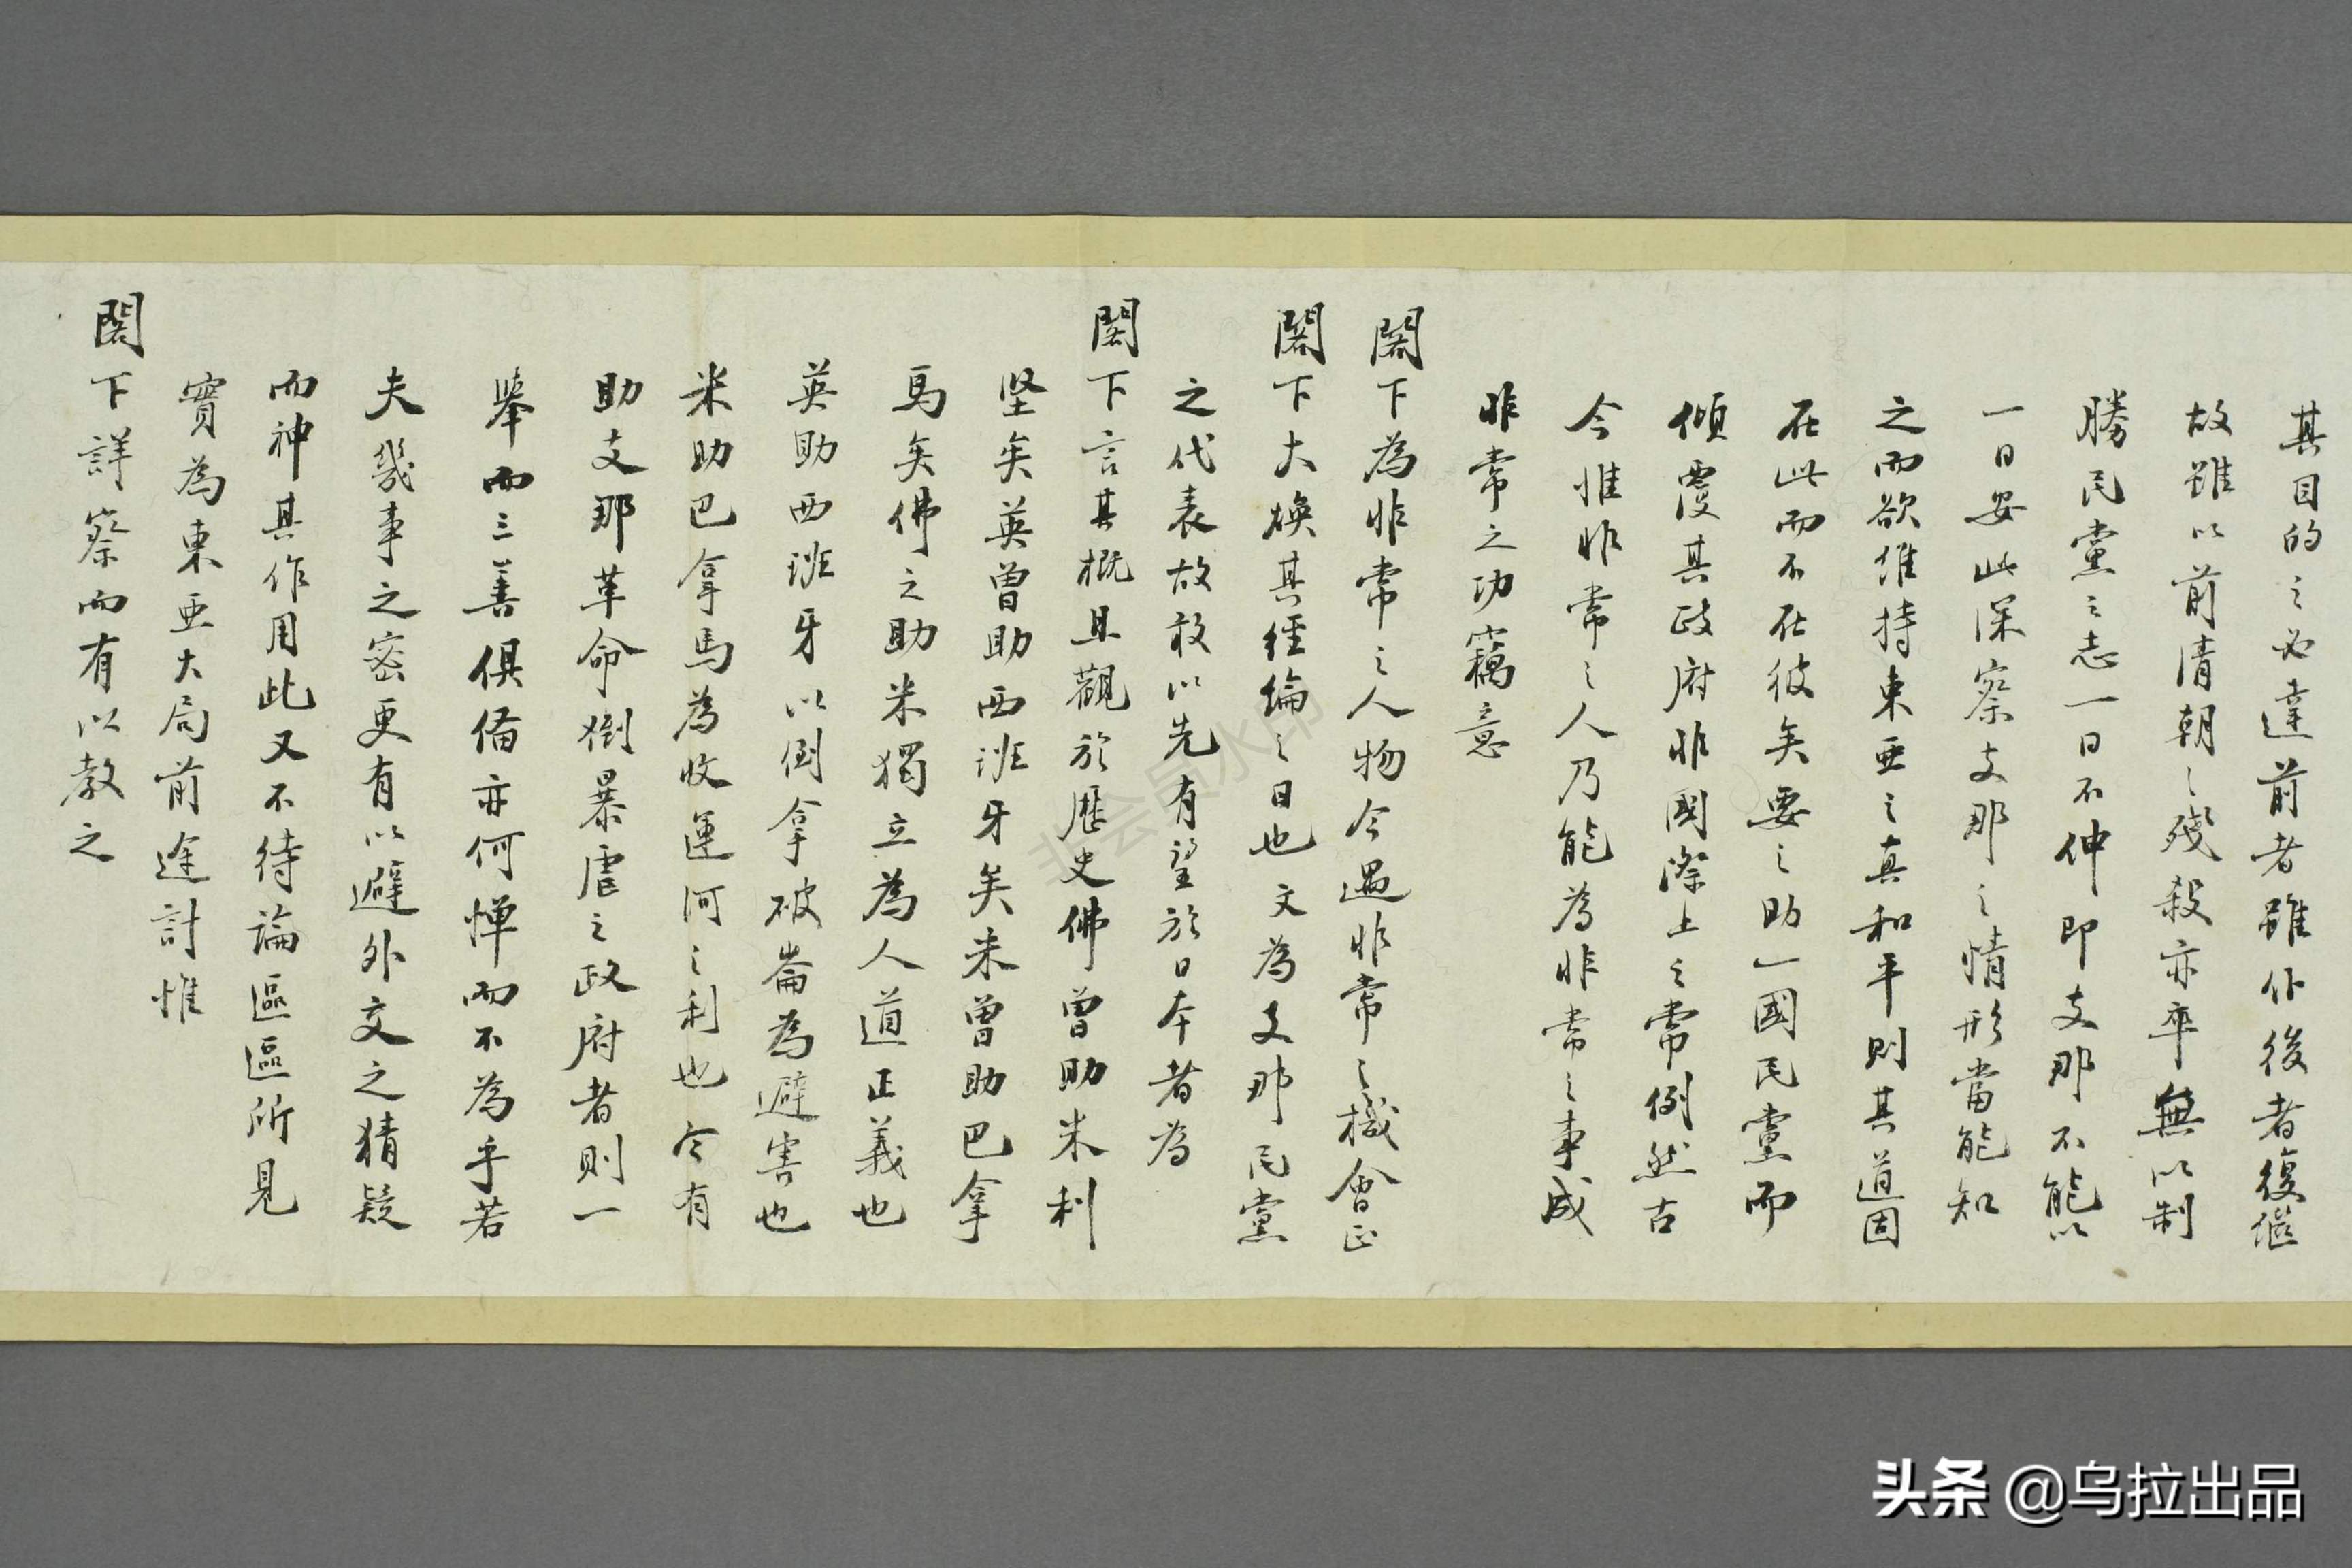 其目的之必達前者雖仆後者復繼
故雖以前清朝之殘殺亦卒無以制
勝民黨之志一日不伸即支那不能以
一日安此深察支那之情形當能知
之而欲維持東亜之真和平則其道固
在此而不在彼矣要之助一國民黨而
傾覆其政府非國際上之常例然古
今惟非常之人乃能為非常之事成
非常之功竊意
閣下為非常之人物今遇非常之機會正
閣下大煥其經綸之日也文為支那民黨
之代表故敢以先有望於日本者為
閣下言其概且觀於歷史佛曾助米利
堅矣英曾助西班牙矣米曾助巴拿
馬矣佛之助米獨立為人道正義也
英助西班牙以倒拿破崙為避害也
米助巴拿馬為收運河之利也今有
助支那革命倒暴虐之政府者則一
舉而三善俱備亦何憚而不為乎若
夫幾事之密更有以避外交之猜疑
而神其作用此又不待論區區所見
實為東亜大局前途計惟
閣下詳察而有以教之
非会员水印
头条 @乌拉出品